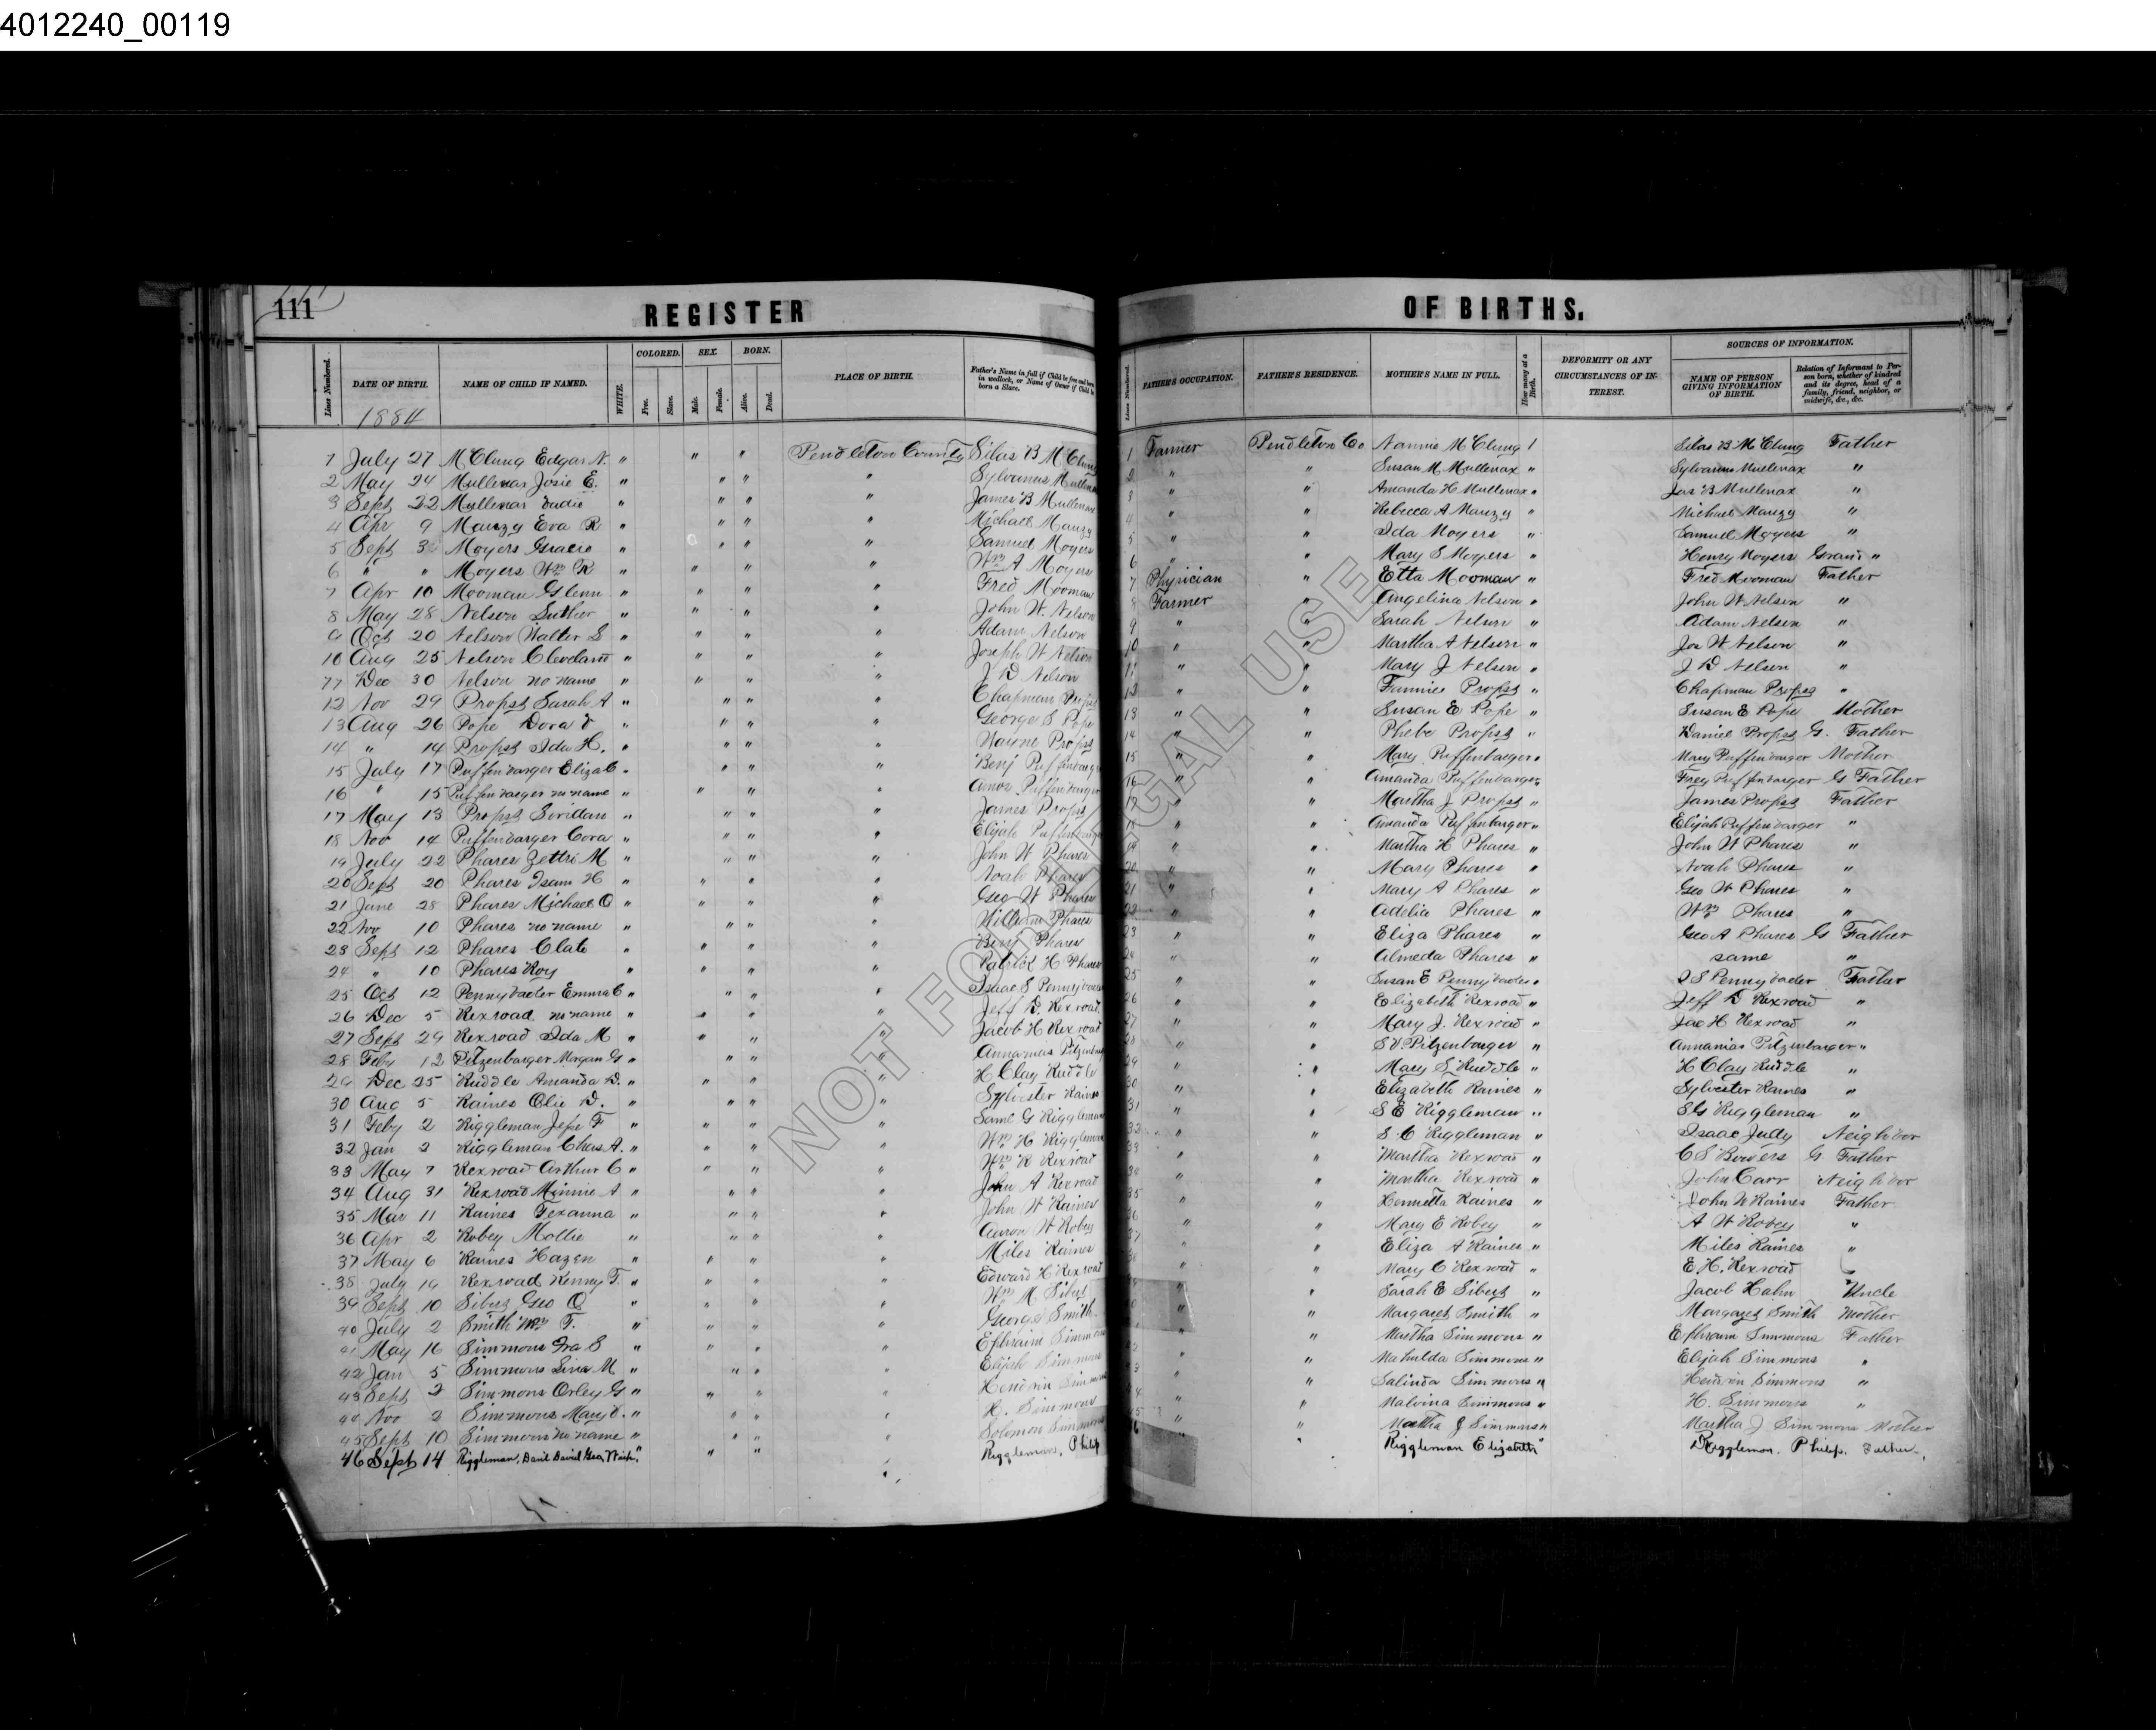 4012240_00119
111
REGISTER OF BIRTHS.
Lines Numbered. DATE OF BIRTH. NAME OF CHILD IF NAMED. WHITE. COLORED. Free. Slave. SEX. Male. Female. BORN. Alive. Dead. PLACE OF BIRTH. Father's Name in full if Child be free and born in wedlock, or Name of Owner if Child be born a Slave. Lines Numbered. FATHER'S OCCUPATION. FATHER'S RESIDENCE. MOTHER'S NAME IN FULL. How many at a Birth. DEFORMITY OR ANY CIRCUMSTANCES OF INTEREST. SOURCES OF INFORMATION. NAME OF PERSON GIVING INFORMATION OF BIRTH. Relation of Informant to Person born, whether of kindred and its degree, head of a family, friend, neighbor, or midwife, &c., &c.
1884
1 July 27 McClung Edgar N. " " " Pendleton County Silas B McClung 1 Farmer Pendleton Co Nannie McClung 1 Silas B McClung Father
2 May 24 Mullenax Josie E. " " " " Sylvanus Mullenax 2 " " Susan M Mullenax " Sylvanus Mullenax "
3 Sept 22 Mullenax " " " " James B Mullenax 3 " " Amanda H Mullenax " Jas B Mullenax "
4 Apr 9 Mauzy Eva R " " " " Michael Mauzy 4 " " Rebecca A Mauzy " Michael Mauzy "
5 Sept Moyers Gracie " " " " Samuel Moyers 5 " " Ida Moyers " Samuel Moyers "
6 " " Moyers Wm R " " " " Wm A Moyers 6 " " Mary S Moyers " Henry Moyers Grand "
7 Apr 10 Mooman Glenn " " " " Fred Mooman 7 Physician " Etta Mooman " Fred Mooman Father
8 May 28 Nelson Luther " " " " John W. Nelson 8 Farmer " Angelina Nelson " John W Nelson "
9 Oct 20 Nelson Walter S " " " " Adam Nelson 9 " " Sarah Nelson " Adam Nelson "
10 Aug 25 Nelson Cleveland " " " " Joseph W Nelson 10 " " Martha A Nelson " Jos W Nelson "
11 Dec 30 Nelson no name " " " " J D Nelson 11 " " Mary J Nelson " J D Nelson "
12 Nov 29 Propst Sarah A " " " " Chapman Propst 12 " " Fannie Propst " Chapman Propst "
13 Aug 26 Pope Dora " " " " George S Pope 13 " " Susan E Pope " Susan E Pope Mother
14 " 14 Propst Ida H. " " " " Wayne Propst 14 " " Phebe Propst " Daniel Propst G. Father
15 July 17 Puffenbarger Elizab " " " " Benj Puffenbarger 15 " " Mary Puffenbarger " Mary Puffenbarger Mother
16 " 15 Puffenbarger no name " " " " Amos Puffenbarger 16 " " Amanda Puffenbarger " Puffenbarger G Father
17 May 13 Propst " " " " James Propst 17 " " Martha J Propst " James Propst Father
18 Nov 14 Puffenbarger Cora " " " " Elijah Puffenbarger 18 " " Amanda Puffenbarger " Elijah Puffenbarger "
19 July 22 Phares M " " " " John W Phares 19 " " Martha H Phares " John W Phares "
20 Sept 20 Phares Isam H " " " " Noah Phares 20 " " Mary Phares " Noah Phares "
21 June 28 Phares Michael O " " " " Geo W Phares 21 " " Mary A Phares " Geo W Phares "
22 Nov 10 Phares no name " " " " William Phares 22 " " Adelia Phares " Wm Phares "
23 Sept 12 Phares Clate " " " " Benj Phares 23 " " Eliza Phares " Geo A Phares G Father
24 " 10 Phares Roy " " " " Patrick H Phares 24 " " Almeda Phares " same "
25 Oct 12 Pennybacker Emma C " " " " Isaac S Pennybacker 25 " " Susan E Pennybacker " I S Pennybacker Father
26 Dec 5 Rexroad no name " " " " Jeff D. Rexroad 26 " " Elizabeth Rexroad " Jeff D Rexroad "
27 Sept 29 Rexroad Ida M " " " " Jacob H Rexroad 27 " " Mary J. Rexroad " Jac H Rexroad "
28 Feby 12 Pitzenbarger Morgan G " " " " Annanias Pitzenbarger 28 " " S V. Pitzenbarger " Annanias Pitzenbarger "
29 Dec 25 Ruddle Amanda D. " " " " H Clay Ruddle 29 " " Mary S Ruddle " H Clay Ruddle "
30 Aug 5 Raines Olie D. " " " " Sylvester Raines 30 " " Elizabeth Raines " Sylvester Raines "
31 Feby 2 Riggleman Jesse F " " " " Saml G Riggleman 31 " " S E Riggleman " S G Riggleman "
32 Jan 2 Riggleman Chas A. " " " " Wm H Riggleman 32 " " S C Riggleman " Isaac Judy Neighbor
33 May 7 Rexroad Arthur C " " " " Wm R Rexroad 33 " " Martha Rexroad " C S Bowers G. Father
34 Aug 31 Rexroad Minnie A " " " " John A Rexroad 34 " " Martha Rexroad " John Carr Neighbor
35 Mar 11 Raines Texanna " " " " John W Raines 35 " " Hennetta Raines " John W Raines Father
36 Apr 2 Robey Mollie " " " " Aaron W Robey 36 " " Mary E Robey " A W Robey "
37 May 6 Raines Hazen " " " " Miles Raines 37 " " Eliza A Raines " Miles Raines "
38 July 19 Rexroad Kenny T. " " " " Edward H Rexroad 38 " " Mary C Rexroad " E. H. Rexroad "
39 Sept 10 Sibert Geo O " " " " Wm M Sibert " " Sarah E Sibert " Jacob Hahn Uncle
40 July 2 Smith Wm T. " " " " George Smith " " Margaret Smith " Margaret Smith Mother
41 May 16 Simmons Ira S " " " " Ephraim Simmons " " Martha Simmons " Ephraim Simmons Father
42 Jan 5 Simmons M " " " " Elijah Simmons " " Mahulda Simmons " Elijah Simmons "
43 Sept 2 Simmons Orley G " " " " Simmons " " Salinda Simmons " Simmons "
44 Nov 2 Simmons Mary " " " " H. Simmons " " Malvina Simmons " H. Simmons "
45 Sept 10 Simmons no name " " " " Solomon Simmons 45 " " Martha J Simmons " Martha J Simmons Mother
46 Sept 14 Riggleman, David Geo " " " " Riggleman, Philip " " Riggleman Elizabeth " Riggleman, Philip. Father
NOT FOR LEGAL USE